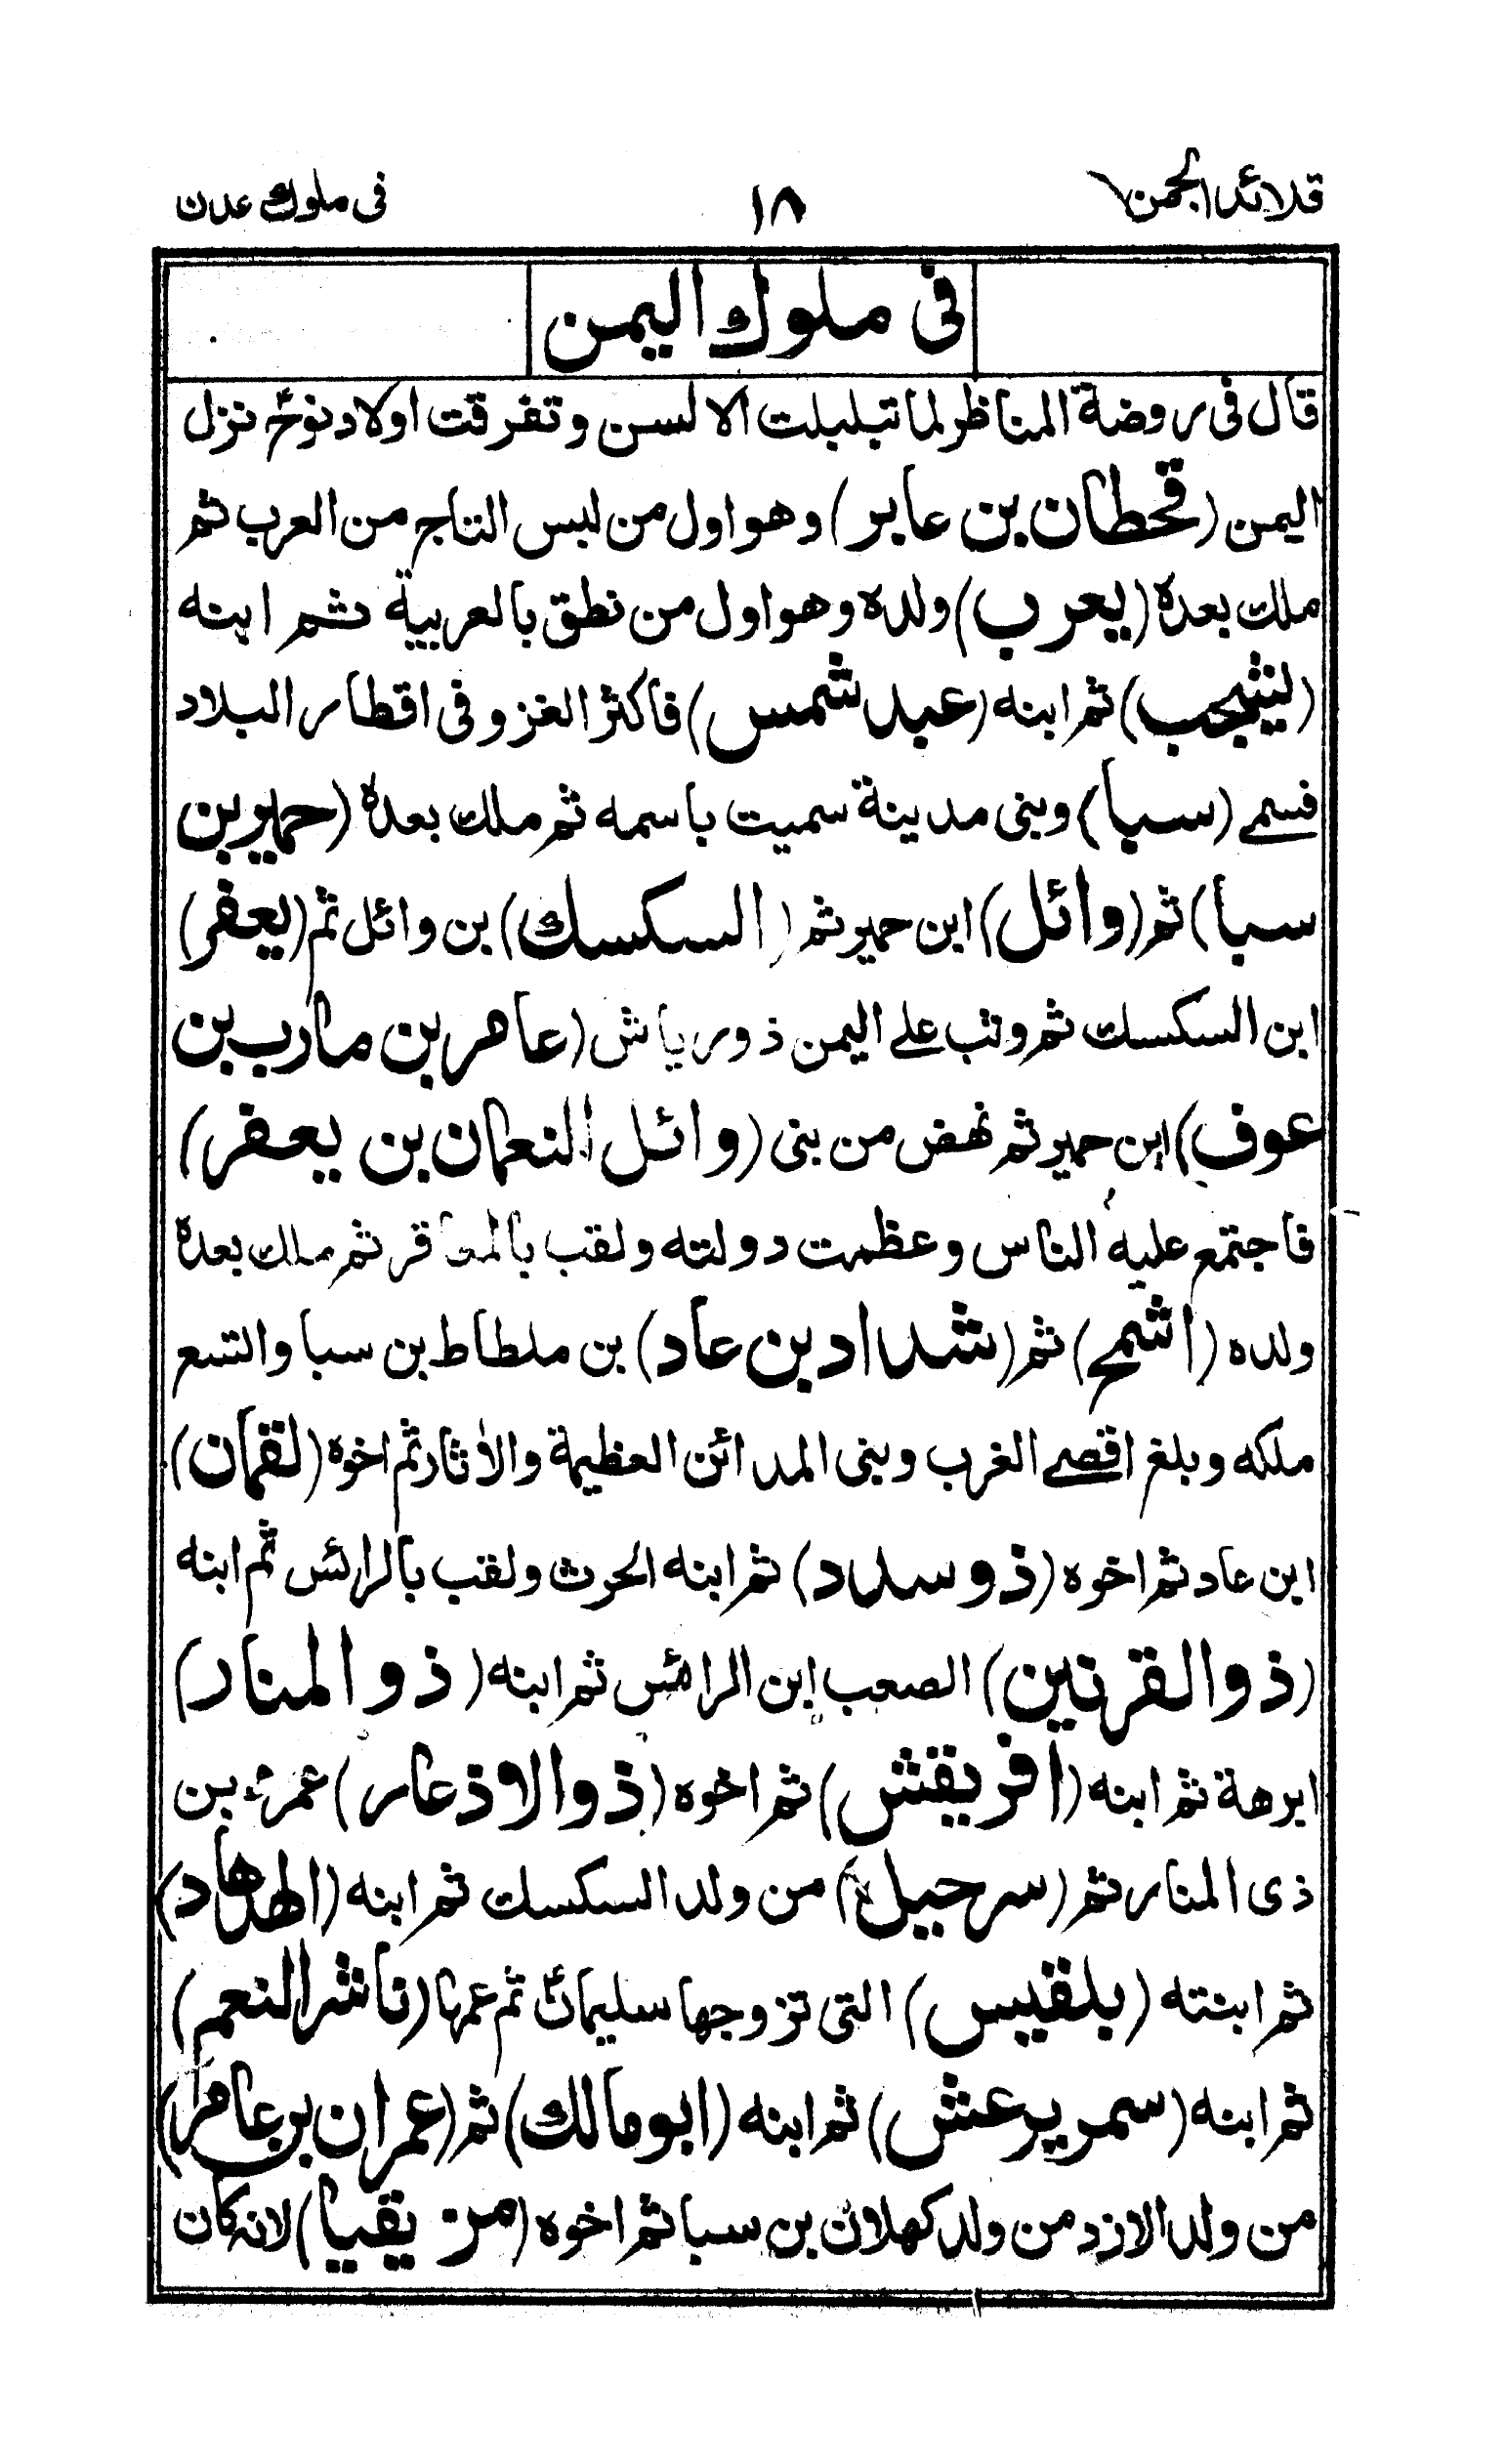 قلائد الجمن
١٨
فى ملوك عدن
فى ملوك اليمن
قال فى روضة المناظر لما تبلبلت الالسن وتفرقت اولاد نوحؑ نزل
اليمن (قحطان بن عابر) وهو اول من لبس التاج من العرب ثم
ملك بعدة (يعرب) ولده وهو اول من نطق بالعربية ثم ابنه
(ليشجب) ثم ابنه (عبد شمس) فاكثر الغزو فى اقطار البلاد
فسمى (سبا) وبنى مدينة سميت باسمه ثم ملك بعدة (حمير بن
سبا) ثم (وائل) ابن حمير ثم (السكسك) بن وائل ثم (يعفر)
ابن السكسك ثم وثب على اليمن ذورياش (عامر بن مارب بن
عوف) ابن حمير ثم نهض من بنى (وائل النعمان بن يعفر)
فاجتمع عليه الناس وعظمت دولته ولقب بالمعاقر ثم ملك بعدة
ولده (اشمح) ثم (شداد بن عاد) بن ملطاط بن سبا واتسع
ملكه وبلغ اقصى الغرب وبنى المدائن العظيمة والاثار ثم اخوه (لقمان)
ابن عاد ثم اخوه (ذو سدد) ثم ابنه الحرث ولقب بالرائش ثم ابنه
(ذو القرنين) الصعب ابن الرائش ثم ابنه (ذو المنار)
ابرهة ثم ابنه (افريقش) ثم اخوه (ذو الاذعار) عمرء بن
ذى المنار ثم (سرحبيل) من ولد السكسك ثم ابنه (الهدهاد)
ثم ابنته (بلقيس) التى تزوجها سليمانؑ ثم عمها (ناشر النعم)
ثم ابنه (سمر يرعش) ثم ابنه (ابو مالك) ثم (عمران بن عامر)
من ولد الازد من ولد كهلان بن سبا ثم اخوه (مزيقيا) لانه كان